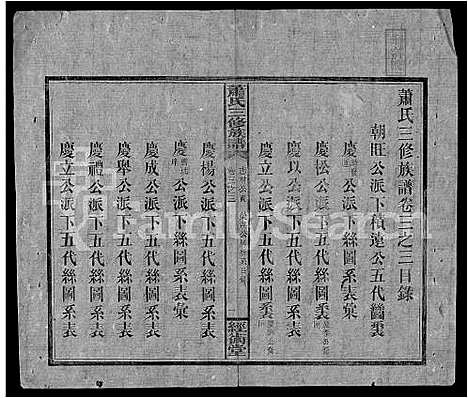 蕭氏三修族譜卷三之三目錄
朝旺公派下積連公五代圖表
慶公派下五代絲圖系表
慶松公派下五代絲圖系表
慶以公派下五代絲圖系表
慶立公派下五代絲圖系表
蕭氏三修族譜
經術堂
慶楊公派下五代絲圖系表
慶公派下五代絲圖系表彙
慶成公派下五代絲圖系表彙
慶舉公派下五代絲圖系表
慶禮公派下五代絲圖系表
慶立公派下五代絲圖系表
FamilySearch